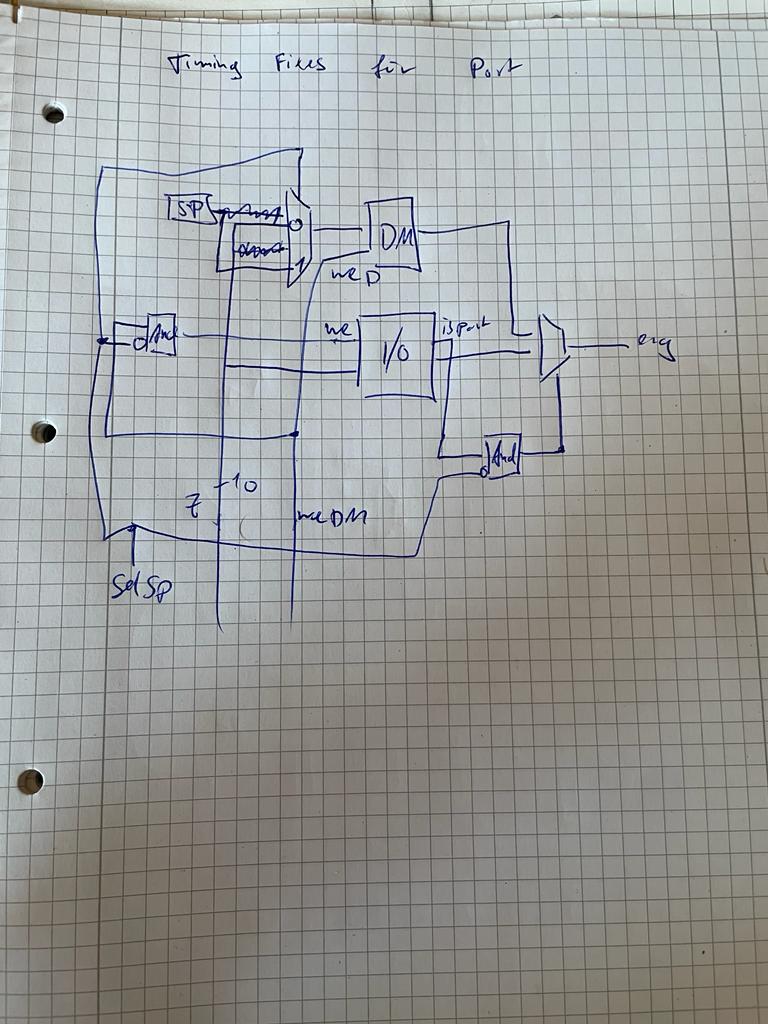 Timing Fixes für Port
SP
0
1
DM
weD
And
we
I/O
isport
erg
And
10
Z
weDM
SelSP